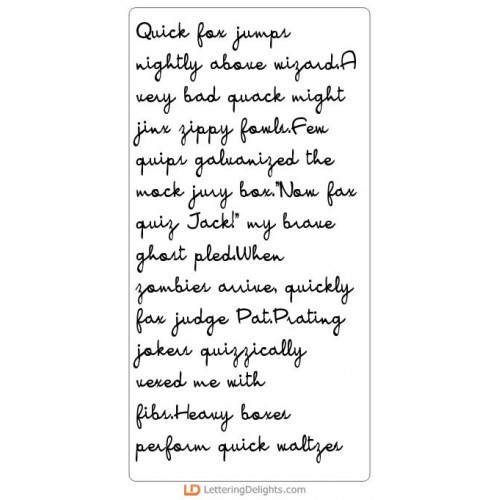 Quick fox jumps
nightly above wizard.A
very bad quack might
jinx zippy fowls.Few
quips galvanized the
mock jury box."Now fax
quiz Jack!" my brave
ghost pled.When
zombies arrive, quickly
fax judge Pat.Prating
jokers quizzically
vexed me with
fibs.Heavy boxes
perform quick waltzes
LD LetteringDelights.com